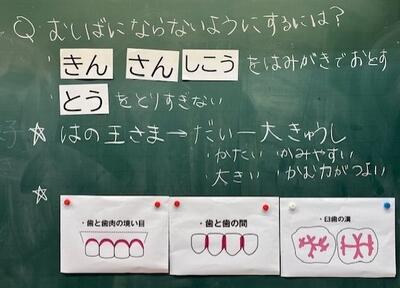 Q むしばにならないようにするには?
・きん さん しこう をはみがきでおとす
・とう をとりすぎない
☆ はの王さま→だい一大きゅうし
・かたい ・かみやすい
・大きい ・かむ力がつよい
☆
・歯と歯肉の境い目
・歯と歯の間
・臼歯の溝